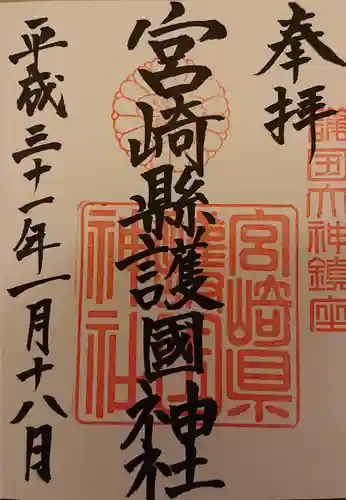 奉拝
護国大神鎮座
宮崎縣護國神社
宮崎県護国神社
平成三十一年一月十八月